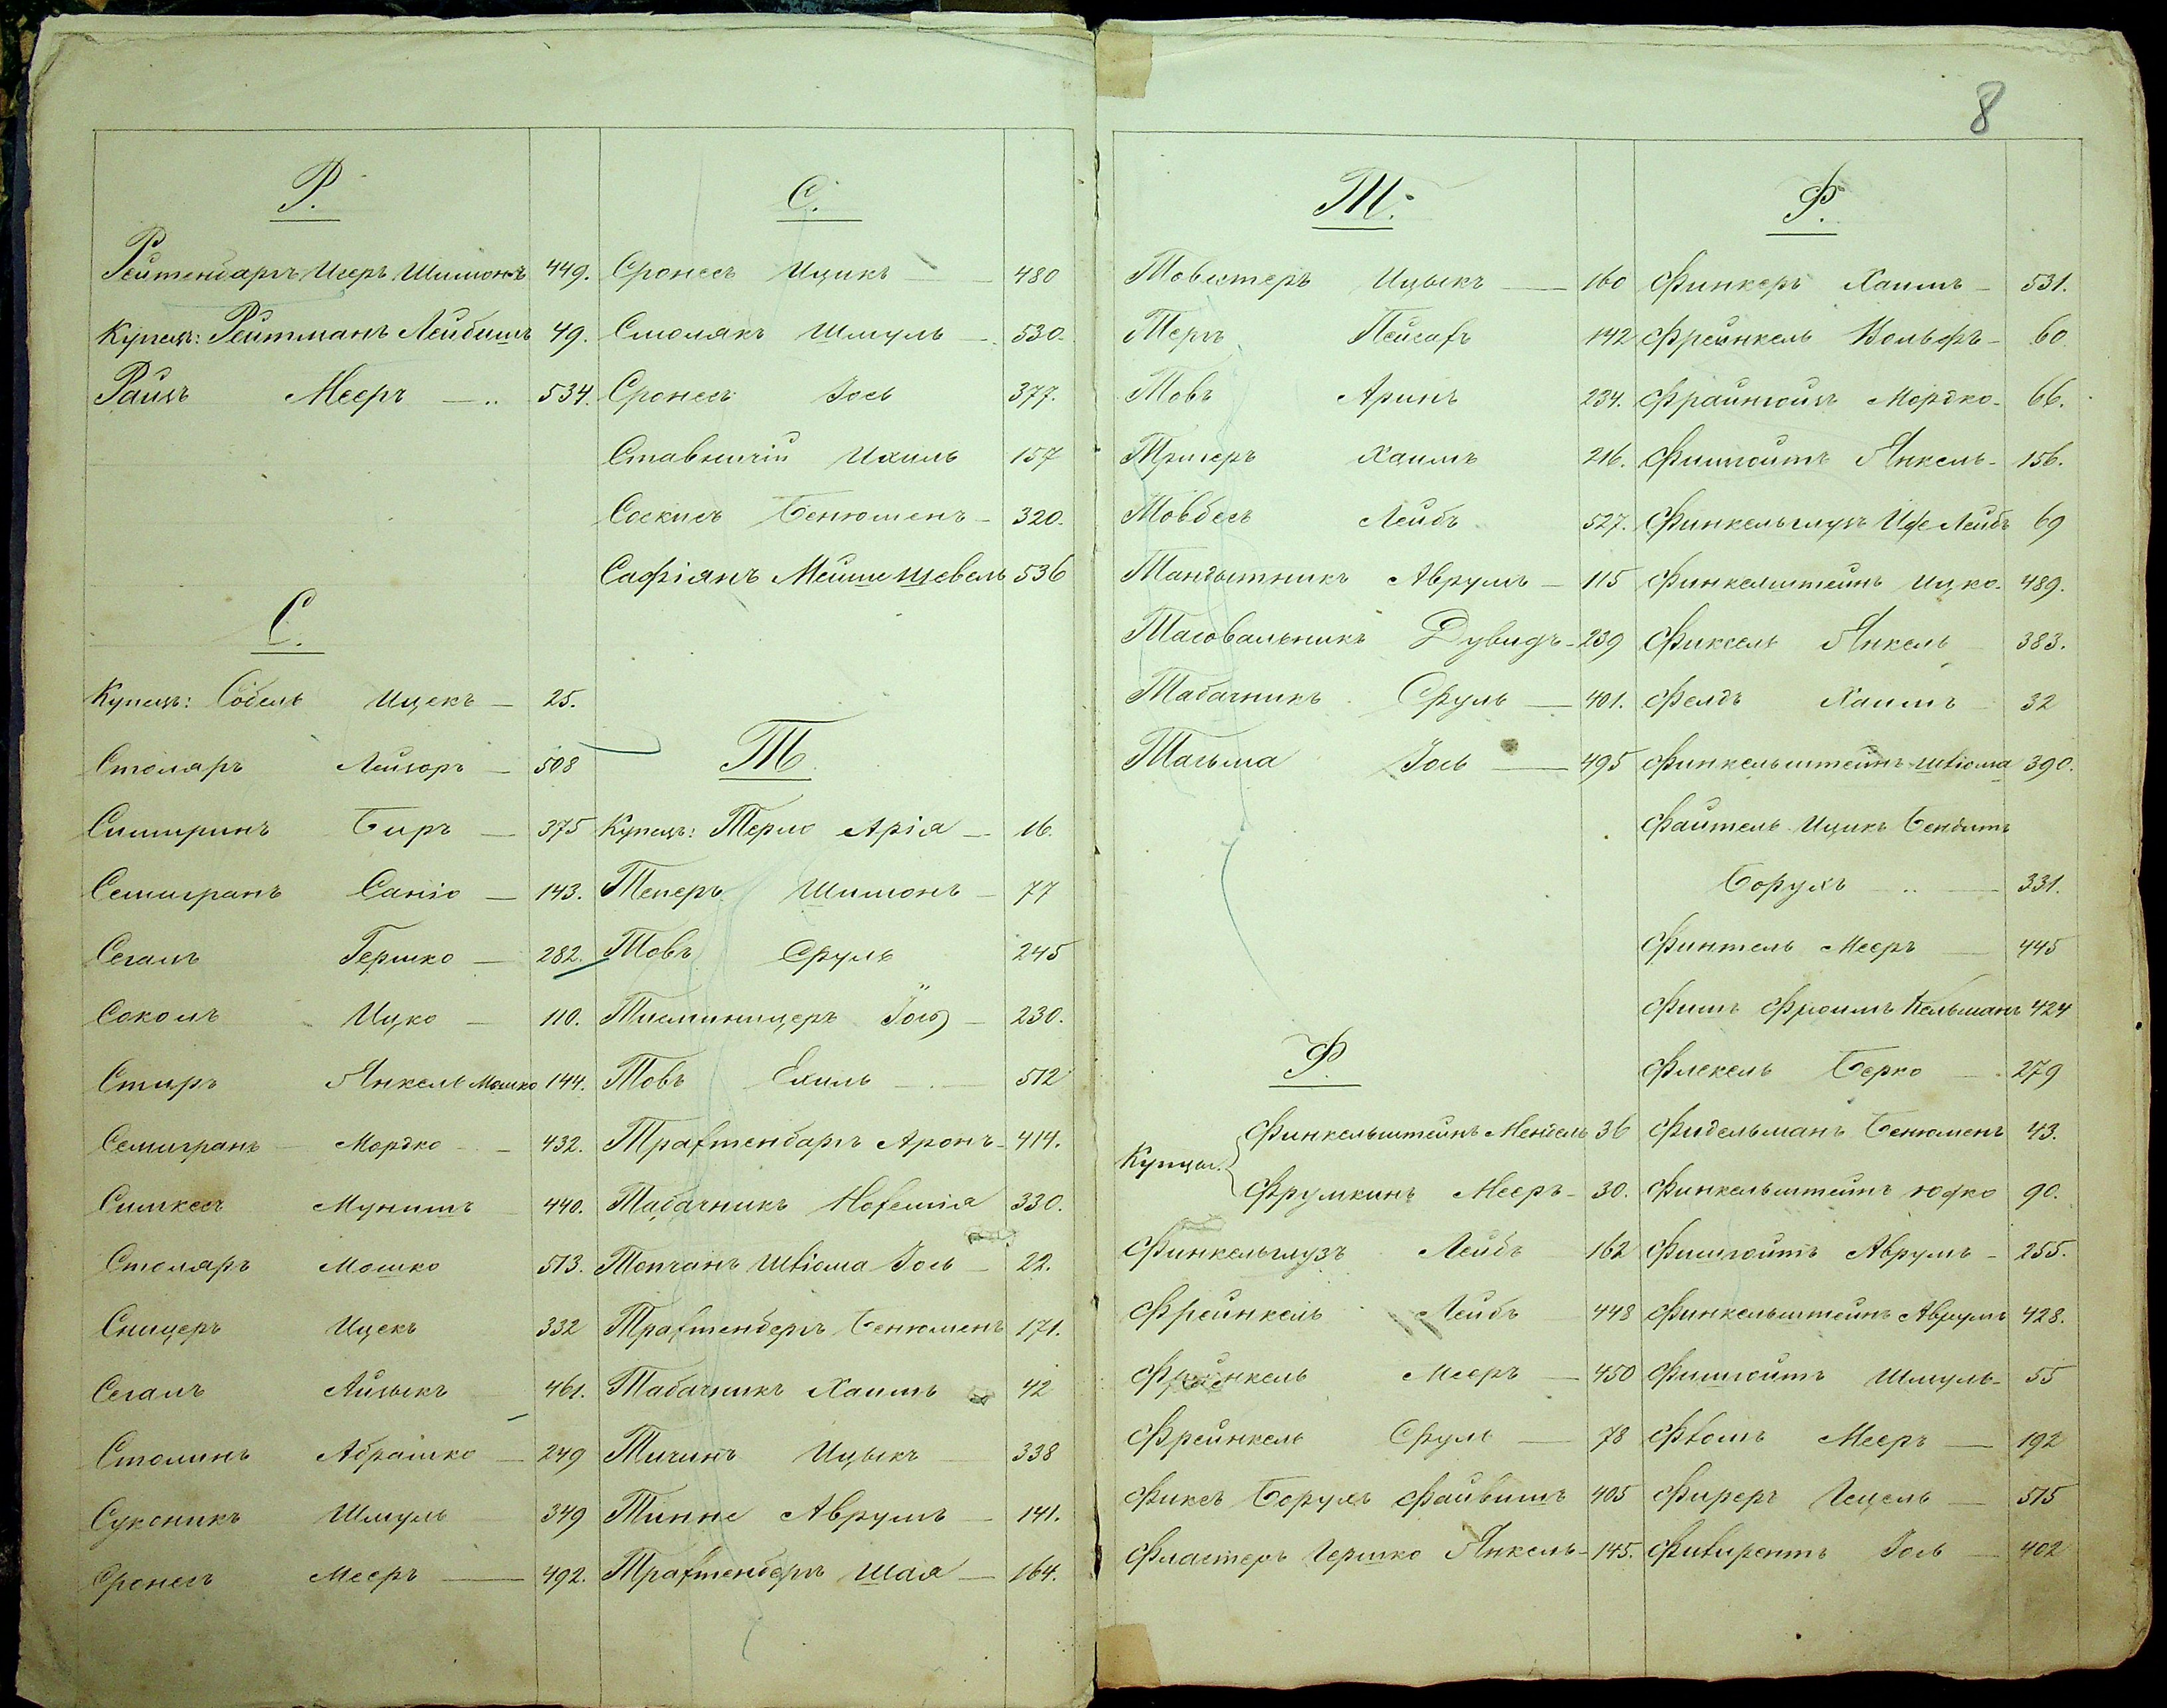 8
Р.
Рейтендаргъ Шимонъ 449.
Купецъ: Рейтманъ Лейбишъ 49.
Райзъ Мееръ — 534.
С.
Купецъ: Собель Ицекъ — 25.
Столяръ Лейзоръ — 508
Сиширинъ Биръ — 375
Семигранъ — 143.
Сегалъ Гершко — 282.
Соколъ Ицко — 110.
Стиръ Янкель Мошко 144.
Семигранъ Мордко — 432.
Симкесъ Мунишъ 440.
Столяръ Мошко 513.
Спицеръ Ицекъ 332
Сегалъ Айзыкъ 461.
Столинъ Абрашко — 249
Суконикъ Шмуль 349
Сронесъ Мееръ — 492.
С.
Сронесъ Ицикъ — 480
Смолякъ Шмуль — 530.
Сронесъ Іось 377.
Ставничій Ихиль 157
Соскисъ Бенюменъ — 320.
Сафіянъ Мейше Шевель 536
Т
Купецъ: Терло Аріа — 16.
Теперъ Шимонъ — 77
Товъ Сруль 245
Тисминицеръ Іось — 230.
Товъ Ехиль — 512
Трахтенбаргъ Аронъ — 414.
Табачникъ Нохемія 330.
Топчанъ Шліома Іось — 22.
Трахтенбергъ Бенюменъ 171.
Табачникъ Хаимъ 42
Тичинъ Ицыкъ 338
Тинне Аврумъ — 141.
Трахтенбергъ Шая — 164.
Т.
Товистеръ Ицыкъ — 160
Тергъ Пейсахъ 142
Товъ Аринъ 234.
Тригеръ Хаимъ 216.
Товбесъ Лейбъ 527.
Тандытникъ Аврумъ — 115
Тасовальникъ Дувидъ — 239
Табачникъ Сруль — 401.
Тагьма Іось — 495
Ф.
Купцы: Финкельштейнъ Мендель 36
Фрумкинъ Мееръ — 30.
Финкельглузъ Лейбъ 162
Фрейнкель Лейбъ 448
Фрейнкель Мееръ — 450
Фрейнкель Сруль — 78
Фиксъ Борухъ Файвишъ 405
Фластеръ Гершко Янкель — 145.
Ф.
Финкеръ Хаимъ — 531.
Фрейнкель Вольфъ — 60
Фраингольцъ Мордко — 66.
Фишгойтъ Янкель — 156.
Финкельглузъ Лейбъ 69
Финкелштейнъ Ицко — 489.
Фиксель Янкель 383.
Фелдъ Хаимъ 32
Финкельштейнъ Шліома 390.
Файтель Ицикъ Бендитъ
Борухъ — 331.
Финтель Мееръ — 445
Фишъ Фроимъ Кельманъ 424
Флекель Берко — 279
Фидельманъ Бенюменъ 43.
Финкельштейнъ Юдко 90.
Фишгойтъ Аврумъ — 255.
Финкельштейнъ Аврумъ 428.
Фишгойтъ Шмуль — 55
Мееръ — 192
Фиреръ Гецель — 515
Іось — 402